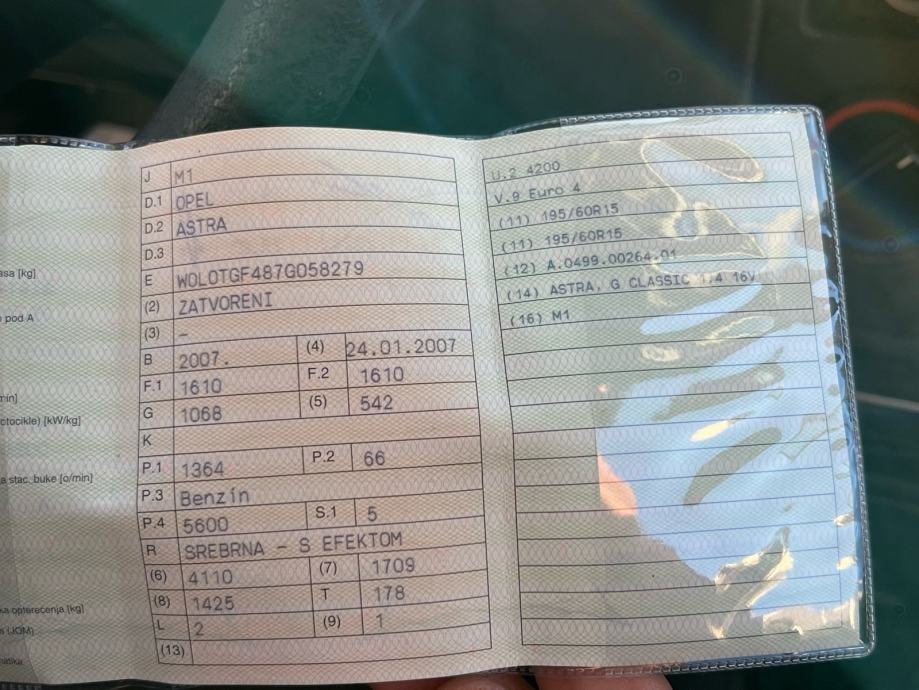 J M1
D.1 OPEL
D.2 ASTRA
D.3
E WOLOTGF487G058279
(2) ZATVORENI
(3) –
B 2007. (4) 24.01.2007
F.1 1610 F.2 1610
G 1068 (5) 542
K
P.1 1364 P.2 66
P.3 Benzín
P.4 5600 S.1 5
R SREBRNA – S EFEKTOM
(6) 4110 (7) 1709
(8) 1425 T 178
L 2 (9) 1
(13)
[kg]
pod A
[kW/kg]
stac. buke [o/min]
opterećenja [kg]
U.2 4200
V.9 Euro 4
(11) 195/60R15
(11) 195/60R15
(12) A.0499.00264.01
(14) ASTRA, G CLASSIC 1,4 16V
(16) M1